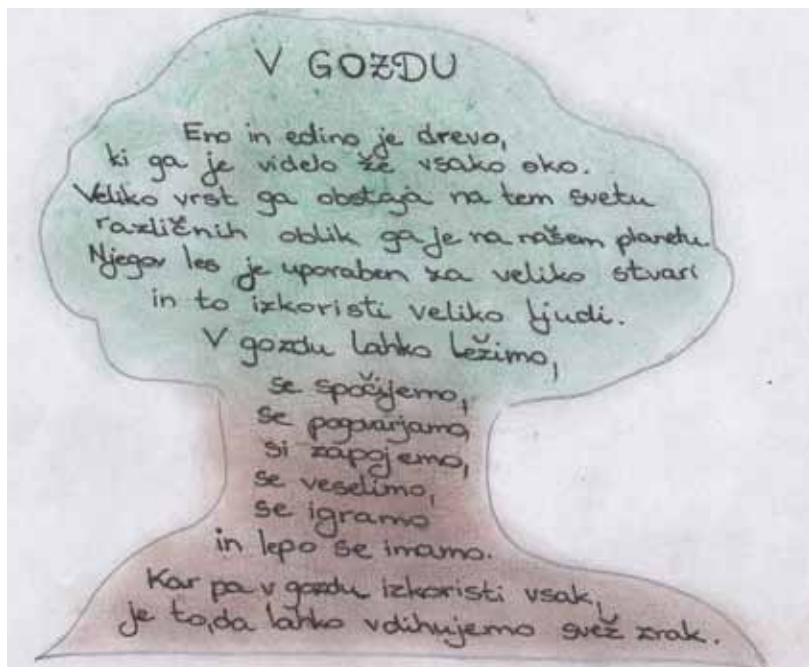 V GOZDU
Eno in edino je drevo,
ki ga je videlo že vsako oko.
Veliko vrst ga obstaja na tem svetu
različnih oblik ga je na našem planetu.
Njegov les je uporaben za veliko stvari
in to izkoristi veliko ljudi.
V gozdu lahko ležimo,
se spočijemo,
se pogovarjamo,
si zapojemo,
se veselimo,
se igramo
in lepo se imamo.
Kar pa v gozdu izkoristi vsak,
je to, da lahko vdihujemo svež zrak.